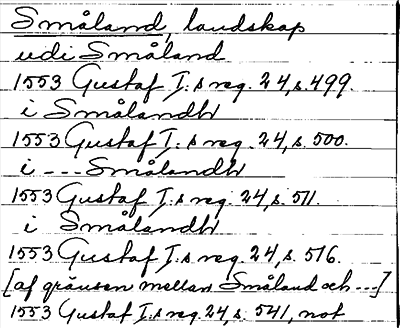 Småland, landskap
udi Småland
1553 Gustaf I:s reg. 24, s. 499.
i Smålandh
1553 Gustaf I:s reg. 24, s. 500.
i --- Smålandh
1553 Gustaf I:s reg. 24, s. 511.
i Smålandh
1553 Gustaf I:s reg. 24, s. 516.
[af gränsen mellan Småland och ---]
1553 Gustaf I:s reg. 24, s. 541, not